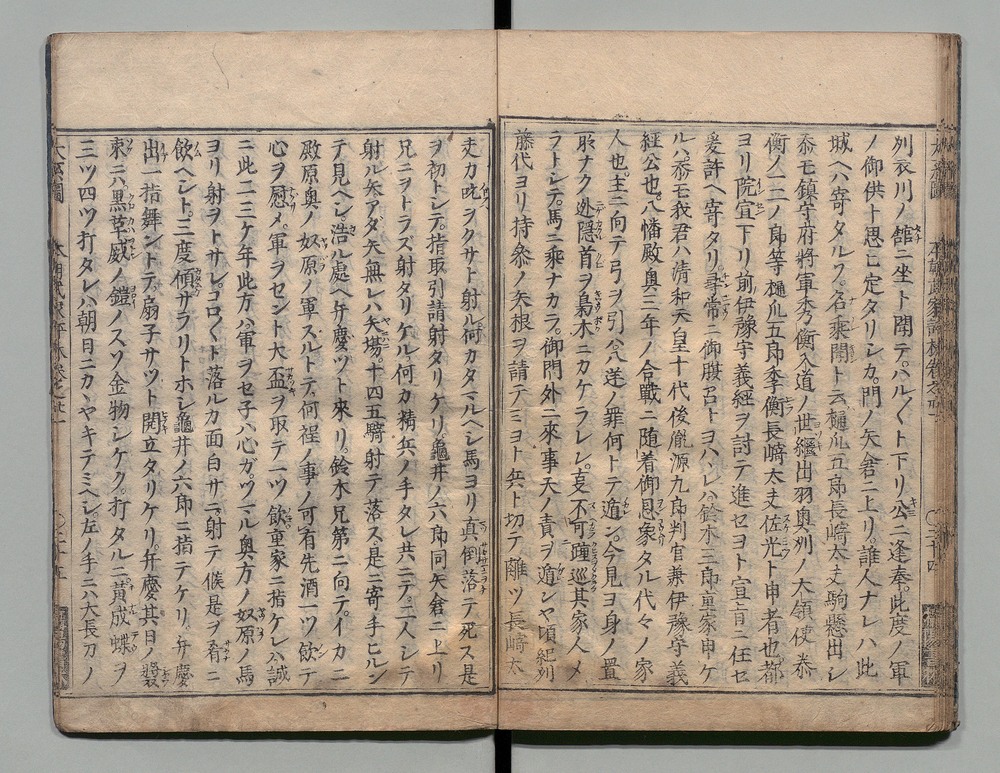 列衣川ノ舘ニ坐ト聞テ。ハル〱ト下リ公ニ逢奉。此度ノ軍
ノ御供ト思ヒ定タリシカ。門ノ矢倉ニ上リ。誰人ナレハ此
城ヘハ寄タルフ。名乘聞ト云樋爪五郎長崎太夫駒懸出シ
忝モ鎮守府將軍秀衡入道ノ世繼出羽奥列ノ大領使泰
衡ノ二ノ郎等樋爪五郎季衡長崎大夫佐光ト申者也都
ヨリ院宣下リ前伊豫守義經ヲ討テ進セヨト宣旨ニ任セ
爰許ヘ寄タリ。尋常ニ御腹召トヨハハレハ鈴木三郎重家申ケ
ル。忝モ我君ハ清和天皇十代後胤源九郎判官兼伊豫守義
經公也。八幡殿奥三年ノ合戰ニ随着御恩家タル代々ノ家
人也。主ニ向テ弓ヲ引八逆ノ罪何トテ遁ン。今見ヨ身ノ置
所ナク迯隠首ヲ鳥木ニカケラレ。哀不可踵巡其家人メ
ラトシテ。馬ニ乘ナカラ。御門外ニ來事天ノ責ヲ遁シヤ頃紀列
藤代ヨリ持參ノ矢根ヲ請テミヨト兵ト切テ離ツ長崎太
夫カ吭ヲクサト射ル何カタマルヘシ馬ヨリ真倒落テ死ス是
ヲ初トシテ。指取引請射タリケリ。龜井ノ六郎同矢倉ニ上リ
兄ニヲトラズ射タリケル何カ精兵ノ手タレ共ニテ。二人シテ
射ル矢アダ矢無レハ矢塲。十四五騎射テ落ス。是ニ寄手ヒルン
テ見ヘシ浩ル處ヘ弁慶ツト來リ。鈴木兄第ニ向テ。イカニ
殿原奥ノ奴原ノ軍スルトテ。何程ノ事ノ可有先酒一ツ飲テ
心ヲ慰メ。軍ヲセント大盃ヲ取テ一ツ飲重家ニ指ケレハ誠
ニ此二三ケ年此方ハ軍ヲセ子ハ心ガツマル奥方ノ奴原ノ馬
ヨリ射ヲトサレ。コロ〱ト落ルカ面白サニ射テ候是ヲ肴ニ
飲ヘシト。三度傾サラリトホシ龜井ノ六郎ニ指テケリ。弁慶
出一指舞ントテ。扇子サツト開立タリケリ。弁慶其日ノ裝
束ニハ黒革威ノ鎧ノスソ金物シケク。打タルニ黄成蝶ヲ
三ツ四ツ打タレハ朝日ニカヽヤキテミヘシ左ノ手ニハ大長刀ノ